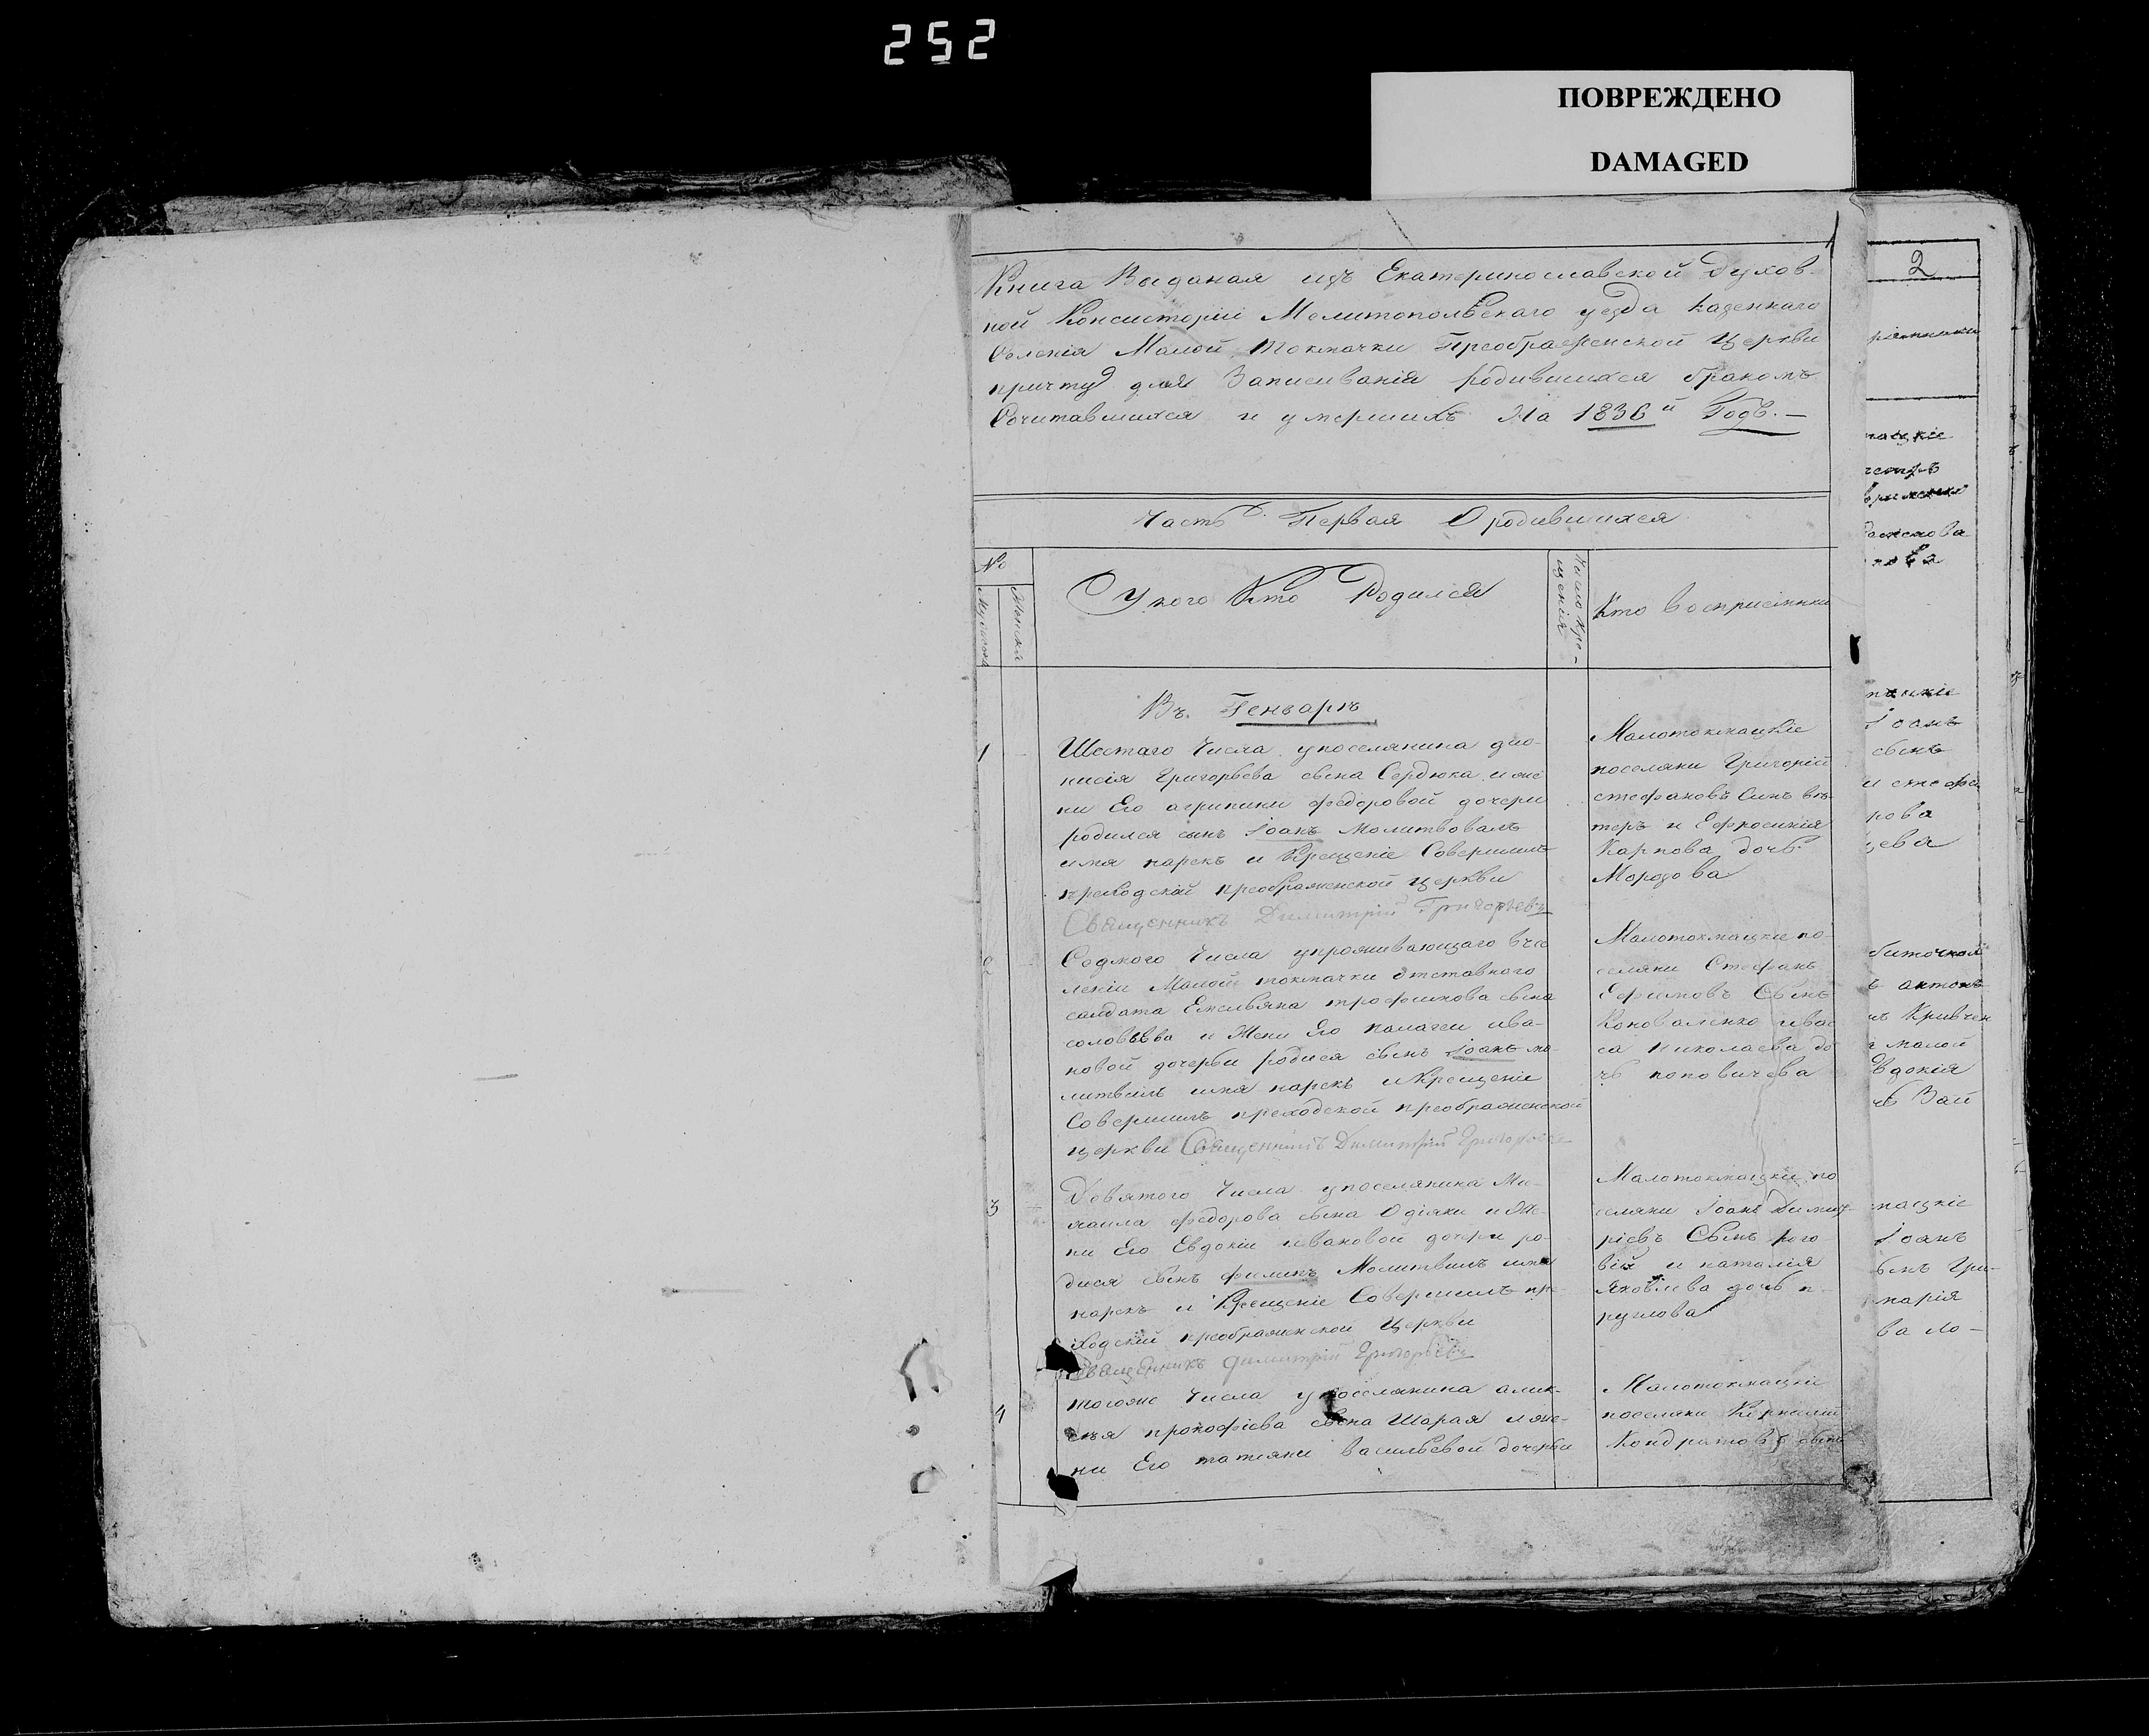 252
ПОВРЕЖДЕНО
DAMAGED
Книга Выданая изъ Екатеринославской Духов-
ной Консисторіи Мелитопольскаго уезда Казеннаго
Селенія Малой Токмачки Преображенской Церкви
причту для Записиванія родившихся бракомъ
Сочитавшихся и умершихъ На 1836й Годъ.—
Часть Первая О родившихся
№
Мужеска
Женска
У кого Кто Родился
Число Кре-
щенія
Кто восприемники
Въ Генваръ
1
Шестаго Числа у поселянина дио-
нисія Григорьева сына Сердюка и же
ни Его агрипини федоровой дочери
родился сынъ Іоанъ Молитвовалъ
имя нарекъ и Крещеніе Совершилъ
преходскій преображенской церкви
Священникъ Димитрій Григорьевъ
Малотокмацкіе
поселяни Григорій
стефановъ Синъ вѣ-
теръ и Ефросинія
Карпова дочь
Морозова
2
Седмого Числа упроживающаго въсе
леніи Малой токмачки отставного
салдата Емельяна трофимова сына
соловьёва и Жени Его палагеи ива-
новой дочерьи родися сынъ Іоанъ мо-
литвилъ имя нарекъ и Крещеніе
Совершилъ преходской преображенской
церкви Священникъ Димитрій Григорьевъ
Малотокмацкие по-
селяни Стефанъ
Ефимовъ Сынъ
Коноваленко
са Николаева до
чь поповичева
3
Девятого Числа у поселянина Ми-
хаила федорова сына Одіяки и Же-
ни Его Евдокіи ивановой дочери ро-
дися сынъ филипъ Молитвилъ имя
нарекъ и Крещеніе Совершилъ пре-
ходскій преображенской Церкви
Священникъ Димитрій Григорьевъ
Малотокмацкие по
селяни Іоанъ Димит-
ріевъ Сынъ рого
вій и наталія
Яковлева дочь п-
руглова
4
тогоже Числа у поселянина алик-
сѣя прокофіева сына Шарая и же-
ни Его татяни васильевой дочерьи
Малотокмацкіе
поселяни Корнилій
Кондратовъ сынъ
2
ріемники
мацкіе
Іоанъ
сынъ
и стефа
рова
цева
ъ антонъ
нъ Кривчен
я малой
Евдокія
чь Вай
мацкіе
Іоанъ
сынъ Гри-
марія
ва ло-